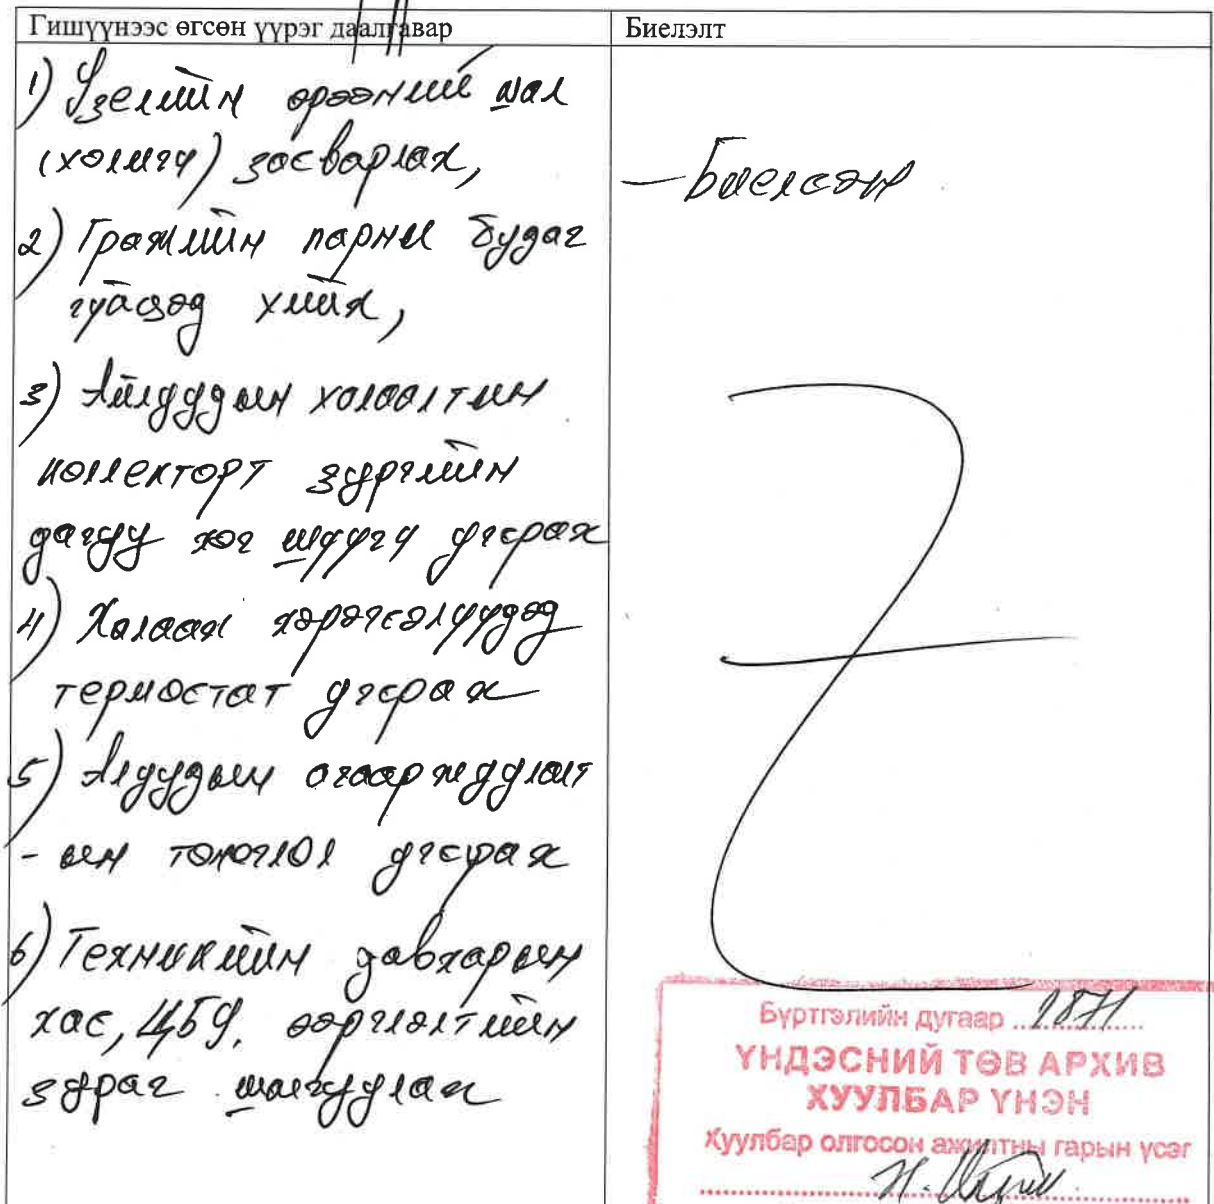 Гишүүнээс өгсөн үүрэг даалгавар
Биелэлт
1) Узелийн өрөөний шал
(хөлмгч) засварлах,
- Биелсэн
2) Гражийн парны будаг
гүйцээд хийх,
3) Айлуудын халаалтын
коллекторт зургийн
дагуу хог шүүгч угсрах
4) Халаах хэрэгсэлүүдэд
термостат угсрах
5) Алуудын агааржуулалт
- ын тоноглол угсрах
6) Техникийн давхарын
хас, ЦБУ, өөрчлөлтийн
зураг шалгуулах
Бүртгэлийн дугаар 2871
ҮНДЭСНИЙ ТӨВ АРХИВ
ХУУЛБАР ҮНЭН
Хуулбар олгосон ажилтны гарын үсэг